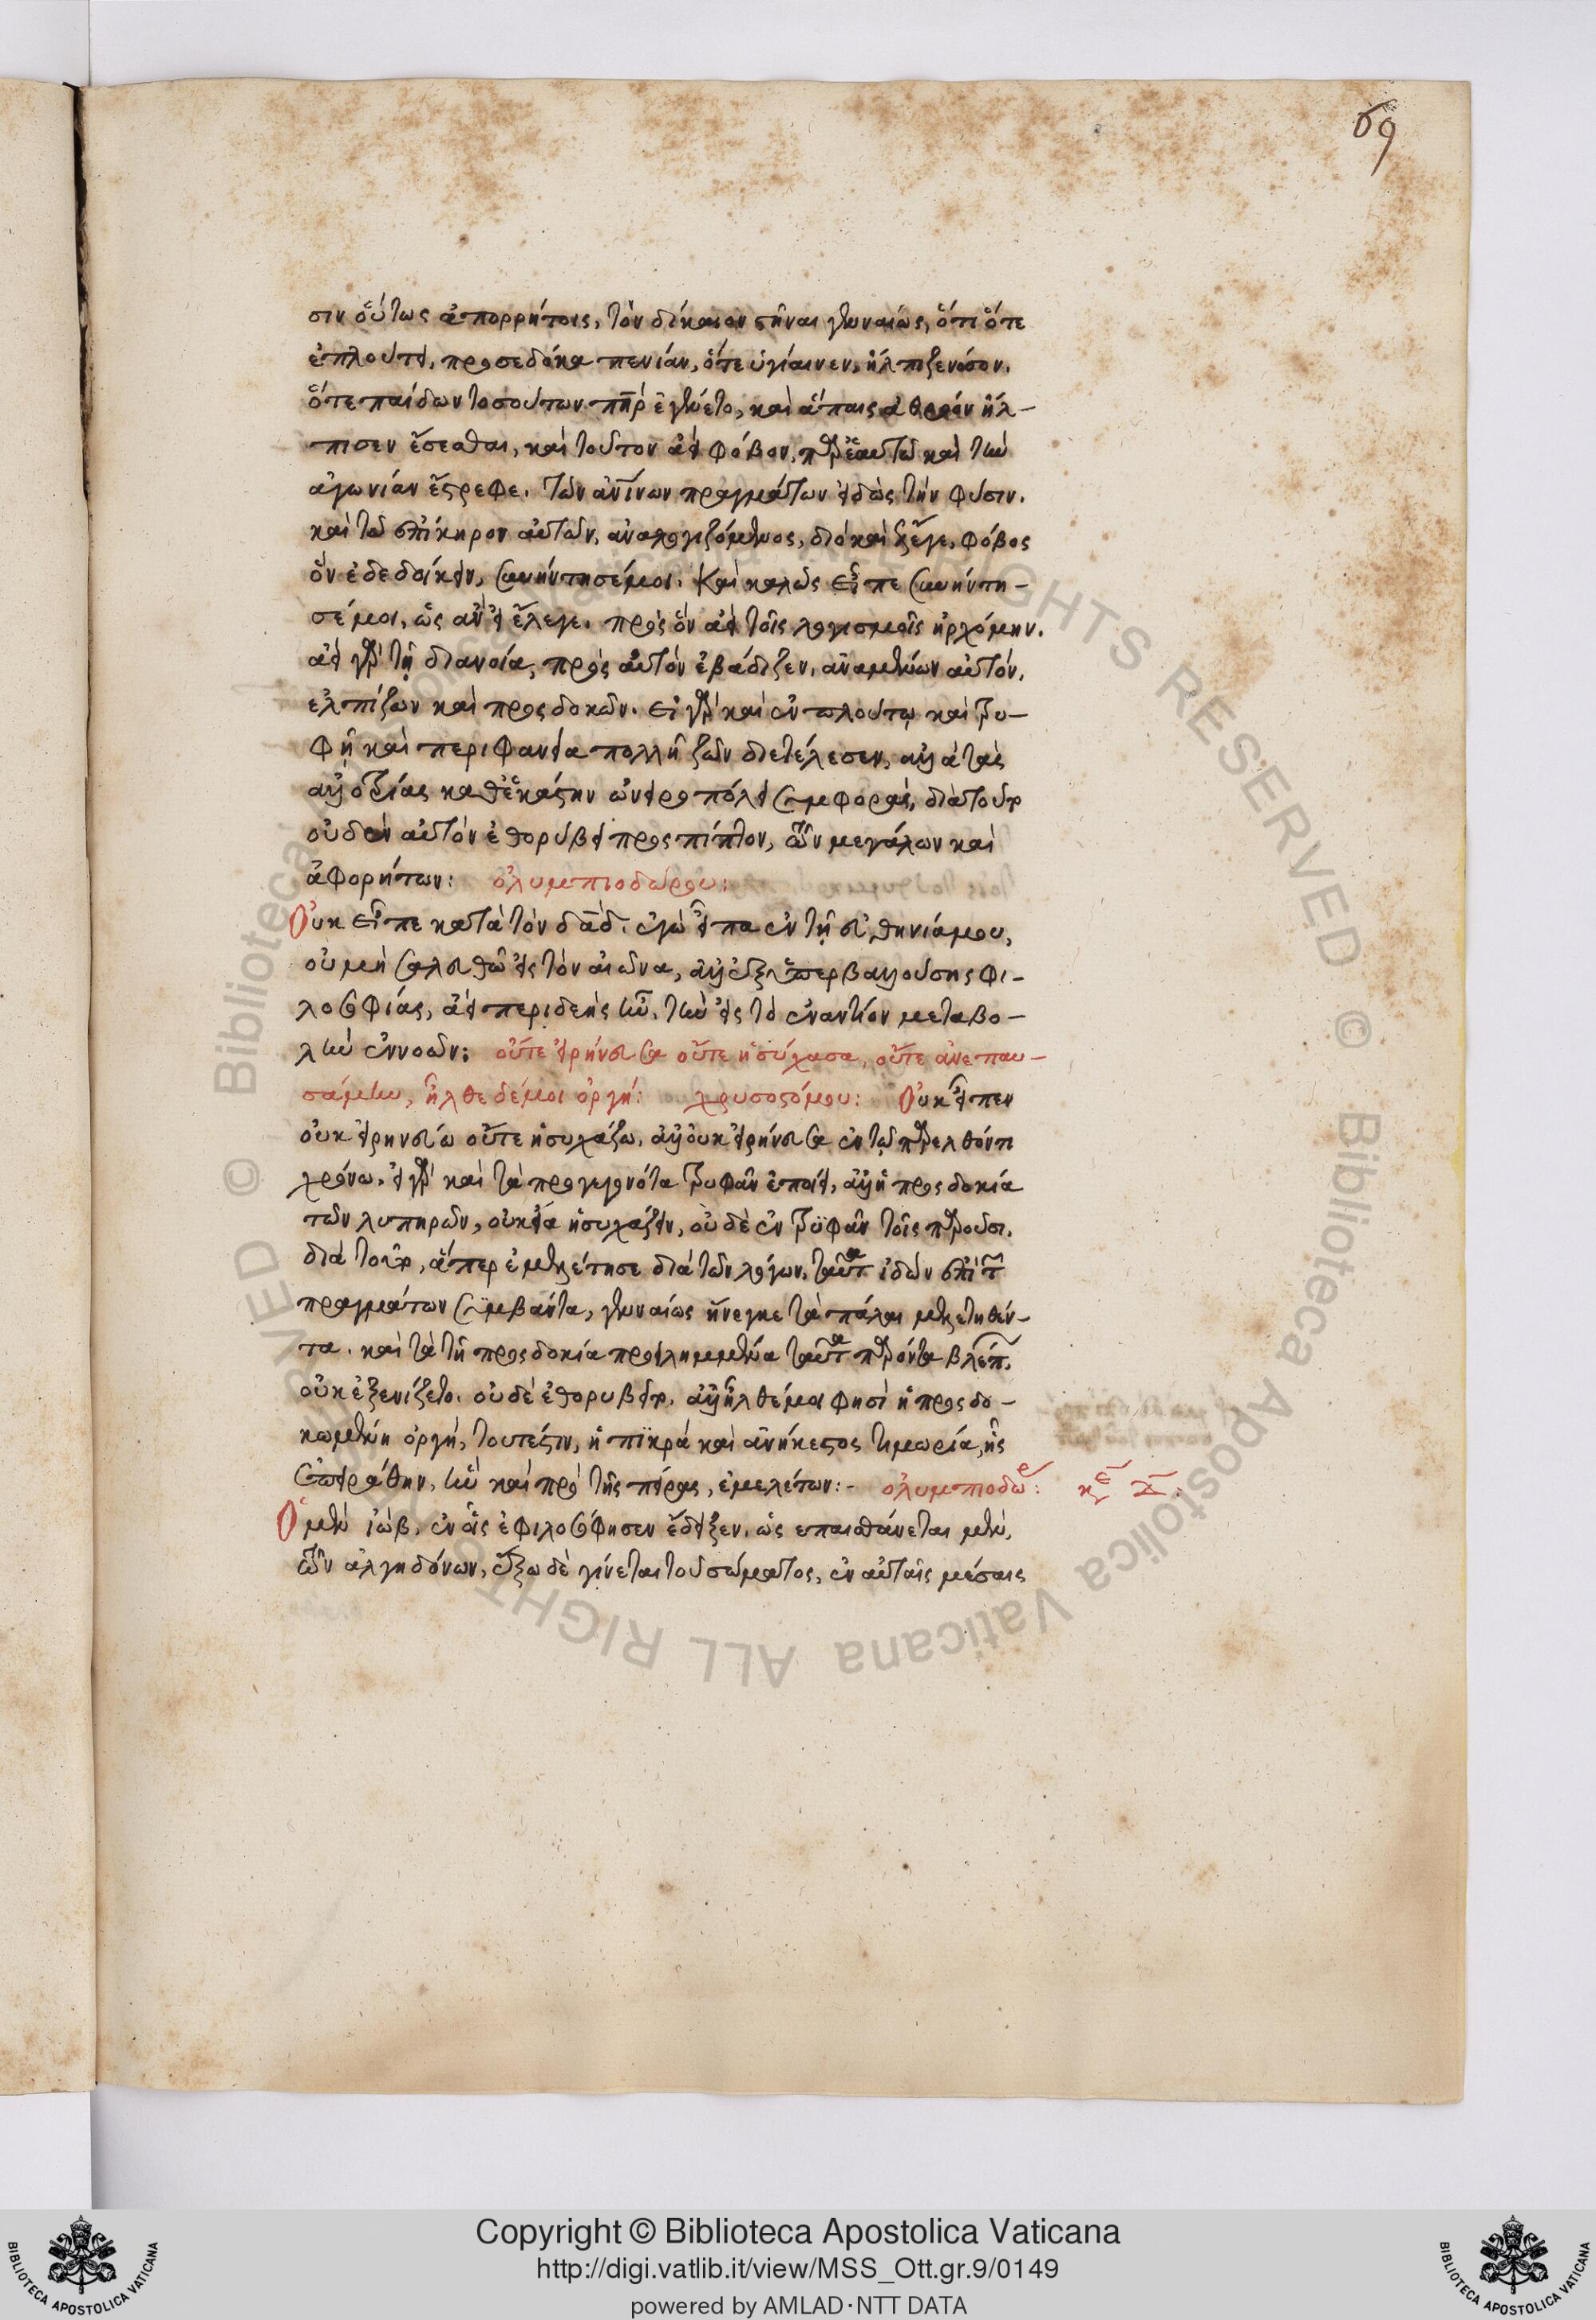 69
σιν οὕτως ἀπορρήτοις, τὸν δίκαιον στῆναι γενναίως, ὅτι ὅτε
ἐπλούτει, προσεδόκα πενίαν, ὅτε ὑγίαινεν, ἤλπιζε νόσον.
ὅτε παίδων τοσούτων πηρ ἐγένετο, καὶ ἄπαις ἀθρόον ἤλ-
πισεν ἔσεσθαι, καὶ τοῦτον ἀεὶ φόβον, παρ' ἑαυτῷ καὶ τὴν
ἀγωνίαν ἔστρεφε. τῶν ἀνίνων πραγμάτων εἰδὼς τὴν φύσιν.
καὶ τὸ ἐπίκηρον αὐτῶν, ἀναλογιζόμενος, διὸ καὶ ἔλεγε, φόβος
ὃν ἐδεδοίκειν, συνήντησέ μοι. Καὶ καλῶς εἶπε συνήντη-
σέ μοι, ὡς ἂν εἰ ἔλεγε. πρὸς ὃν ἀεὶ τοῖς λογισμοῖς ἠρχόμην.
ἀεὶ γὰρ τῇ διανοίᾳ, πρὸς αὐτὸν ἐβάδιζεν, ἀναμένων αὐτόν,
ἐλπίζων καὶ προσδοκῶν. εἰ γὰρ καὶ ἐν πλούτῳ καὶ τρυ-
φῇ καὶ περιφανεία πολλῇ ζῶν διετέλεσεν, ἀλλὰ τὰς
ἀλλοτρίας καθεκάστην ὠνειροπόλει συμφοράς, διατοῦτο
οὐδὲν αὐτὸν ἐθορύβει προσπίπτον, τῶν μεγάλων καὶ
ἀφορήτων: ὀλυμπιοδώρου:
Οὐκ εἶπε κατὰ τὸν δαδ. ἐγὼ εἶπα ἐν τῇ εὐθηνία μου,
οὐ μὴ σαλευθῶ εἰς τὸν αἰῶνα, ἀλλ' ἐξ ὑπερβαλλούσης φι-
λοσοφίας, ἀεὶ περιδεὴς ἦν, τὴν εἰς τὸ ἐναντίον μεταβο-
λὴν ἐννοῶν: οὔτε εἰρήνευσα οὔτε ἡσύχασα, οὔτε ἀνεπαυ-
σάμην, ἦλθε δέ μοι ὀργή: χρυσοστόμου: Οὐκ εἶπεν
οὐκ εἰρηνεύω οὔτε ἡσυχάζω. ἀλλ' οὐκ εἰρήνευσα ἐν τῷ παρελθόντι
χρόνω. εἰ γὰρ καὶ τὰ προγεγονότα τρυφᾶν ἐποίει, ἀλλ' ἡ προσδοκία
τῶν λυπηρῶν, οὐκ εἴα ἡσυχάζειν, οὐδὲ ἐντρυφᾶν τοῖς παροῦσι.
διὰ τοῦτο, ἅπερ ἐμελέτησε διὰ τῶν λόγων, ταῦτα ἰδὼν ἐπὶ τῶν
πραγμάτων συμβάντα, γενναίως ἤνεγκε τὰ πάλαι μελετηθέν-
τα. καὶ τὰ τῇ προσδοκία προειλημμένα ταῦτα παρόντα βλέπων
οὐκ ἐξενίζετο. οὐδὲ ἐθορυβεῖτο. ἀλλ' ἦλθέ μοι φησὶ ἡ προσδο-
κωμένη ὀργή, τουτέστιν, ἡ πικρὰ καὶ ἀνήκεστος τιμωρία, ἧς
ἐπειράθην, ἣν καὶ πρὸ τῆς πείρας, ἐμελέτων:- ὀλυμπιοδώρ:
Ὁ μὲν ἰώβ, ἐν οἷς ἐφιλοσόφησεν ἔδειξεν, ὡς επαισθάνεται μὲν,
τῶν ἀλγηδόνων, ἔξω δὲ γίνεται τοῦ σώματος, ἐν αὐταῖς μέσαις
Copyright © Biblioteca Apostolica Vaticana
http://digi.vatlib.it/view/MSS_Ott.gr.9/0149
powered by AMLAD·NTT DATA